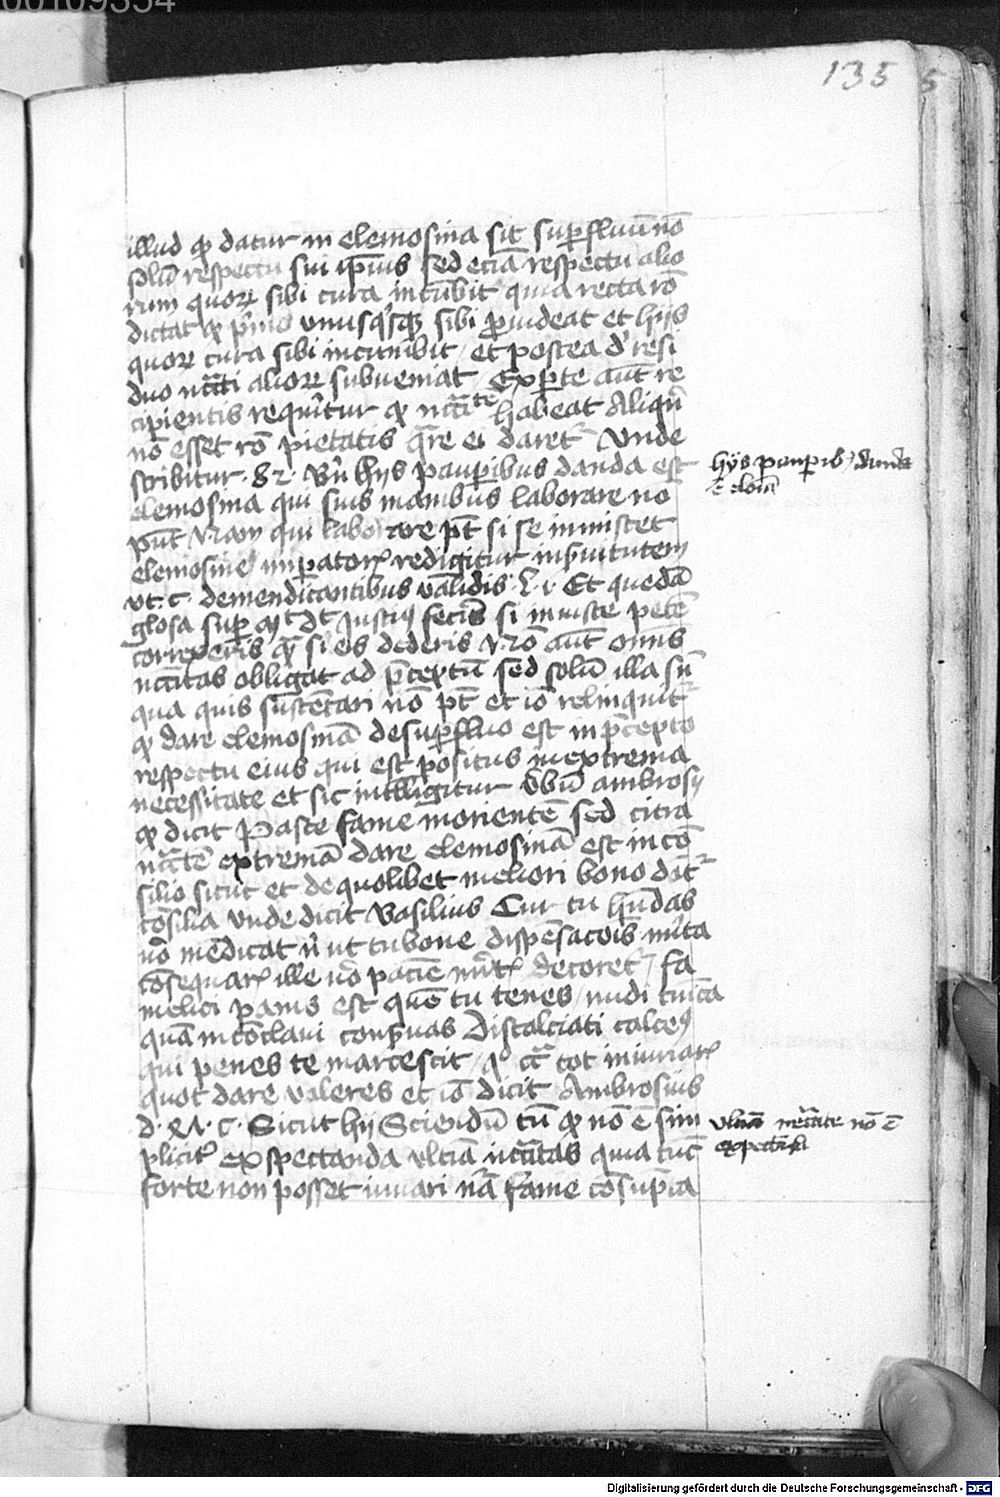 00109354
135
5
illud qͥ datur in elemosina sit suꝑfluū nō
solū respectu sui ip̄ius sed eciā respectu alio
rum quoꝝ sibi cura incūbit quia recta rō
dictat qͥ p̄mo vnusqͥsqꝫ sibi ꝓuideat et hijs
quoꝝ cura sibi incumbit / et postea dͤ resi
duo nc̄c̄ti alioꝝ subueniat Ex ꝑte aūt re
cipientis requirͥtur qͥ nc̄c̄tēꝫ habeat Aliqn̄
nō esset rō pietatis qͣre ei daretᷣ Vnde
scribitur · 82 · Vn̄ hijs pauꝑibus danda est
elemosina qui suis manibus laborare nō
pn̄t Nam qui laborare pt̄ si se inmiscet
elemosine
vt · C · de mendicantibus validis · l · i · Et quedā
glosa suꝑ dt̄ Justiꝰ fecis̄ si iniuste petē
correxeris qͣ si eis dederis Nō aūt om̄is
nc̄c̄itas obligat ad p̄ceptū sed solū illa sn̄
qua quis sustētari nō pt̄ et iō relinquitᷣ
qͥ dare elemosinā de suꝑfluo est in p̄cepto
respectu eius qui est positus in extrema
necessitate et sic intelligitur v̄bū ambrosij
qͥ dicit Pasce fame morientē sed citra
nc̄c̄tē extremā dare elemosinā est in cō
silio sicut et de quolibet meliori bono dātᷣ
cōsilia Vnde dicit Basilius Cur tu hn̄das
ille vͦ mēdicat n̄ ut tu bone dispēsacōis mͥta
cōsequarͥ ille vͦ paciē decoretᷣ / fa
melici panis est quē tu tenes / nudi tunica
quā in cōclaui conseruas Discalciati calceꝰ
qui penes te marcescit / qͣ c̄ tot iniuriarͥ
quot dare valeres et iō dicit Ambrosius
d · Sicut hij Sciendū tn̄ qͥ nō ē sim
plicitͥ expectanda vltiā nc̄c̄itas quia tūc
forte non posset iuuari nͣā fame cōsūpta
hijs pauꝑib / danda
ē eloīa
vltiā nec̄c̄tate nō ē
expectādū
Digitalisierung gefördert durch die Deutsche Forschungsgemeinschaft - DFG